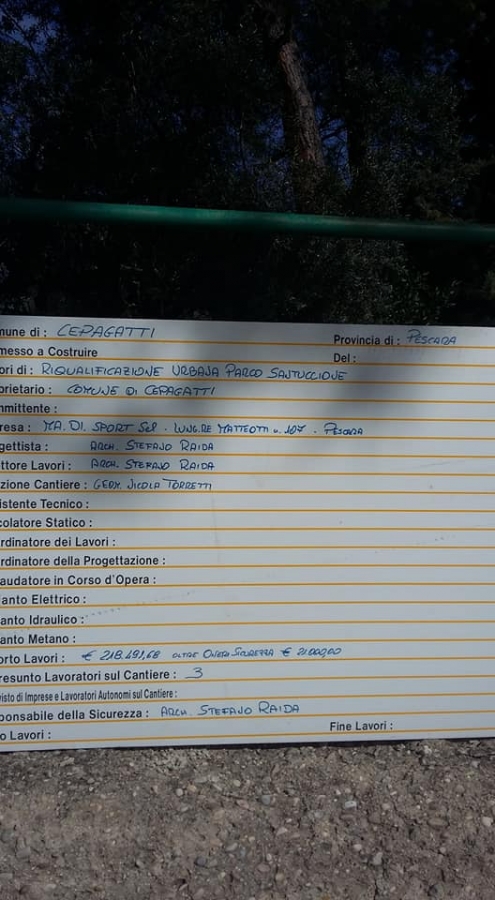 mune di : CEPAGATTI Provincia di : PESCARA
messo a Costruire Del :
ori di : RIQUALIFICAZIONE URBANA PARCO SANTUCCIONE
prietario : COMUNE DI CEPAGATTI
mmittente :
resa : MA.DI. SPORT Srl - LUNG.RE MATTEOTTI n. 107 - PESCARA
gettista : ARCH. STEFANO RAIDA
ttore Lavori : ARCH. STEFANO RAIDA
zione Cantiere : GEOM. NICOLA TORRETTI
istente Tecnico :
colatore Statico :
rdinatore dei Lavori :
rdinatore della Progettazione :
audatore in Corso d'Opera :
ianto Elettrico :
ianto Idraulico :
ianto Metano :
orto Lavori : € 218.491,68 OLTRE ONERI SICUREZZA € 21.000,00
resunto Lavoratori sul Cantiere : 3
visto di Imprese e Lavoratori Autonomi sul Cantiere :
ponsabile della Sicurezza : ARCH. STEFANO RAIDA
o Lavori : Fine Lavori :